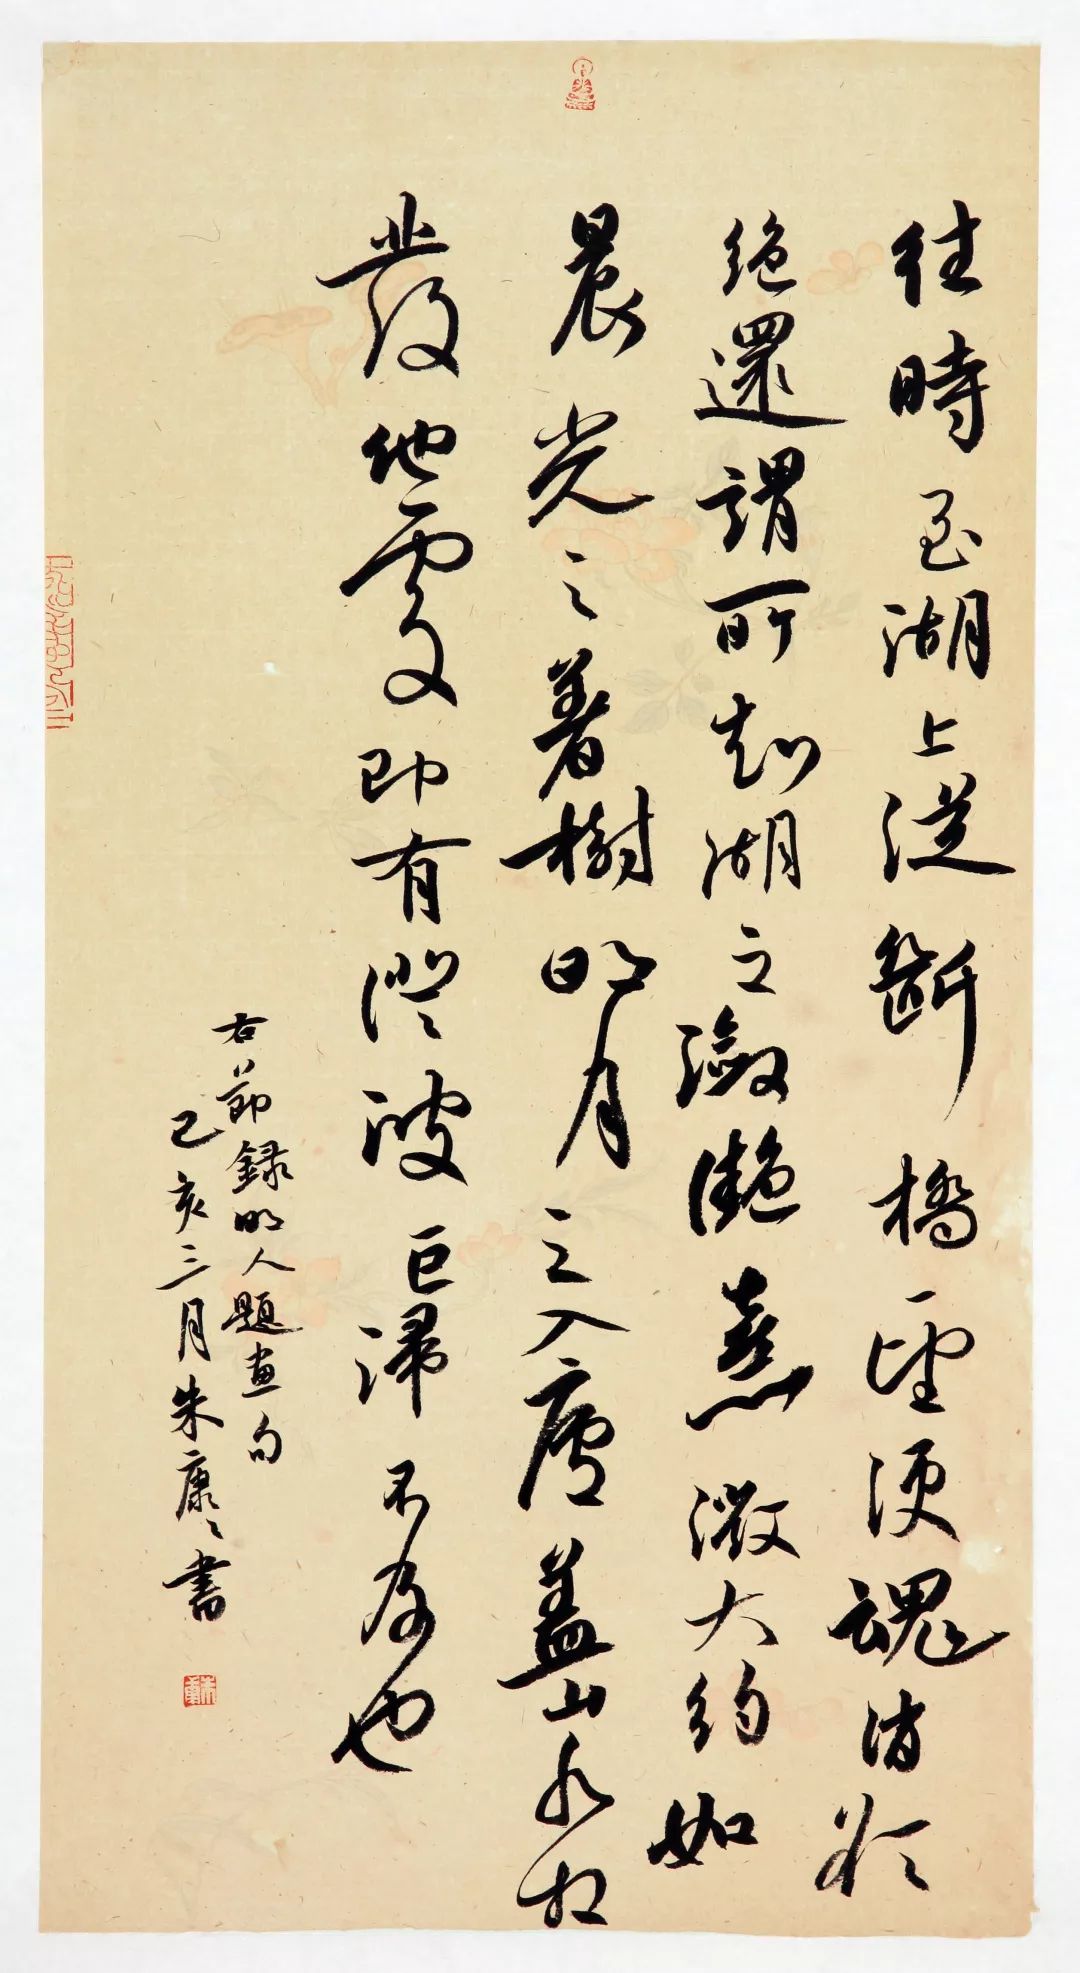 往時至湖上從斷橋望便魂消欲
絕還謂所知湖之瀲灩熹微大約如
晨光之着樹明月之入廬蓋山水相
發他處即有澄波巨浸不及也
右節錄明人題畫句
己亥三月朱康々書